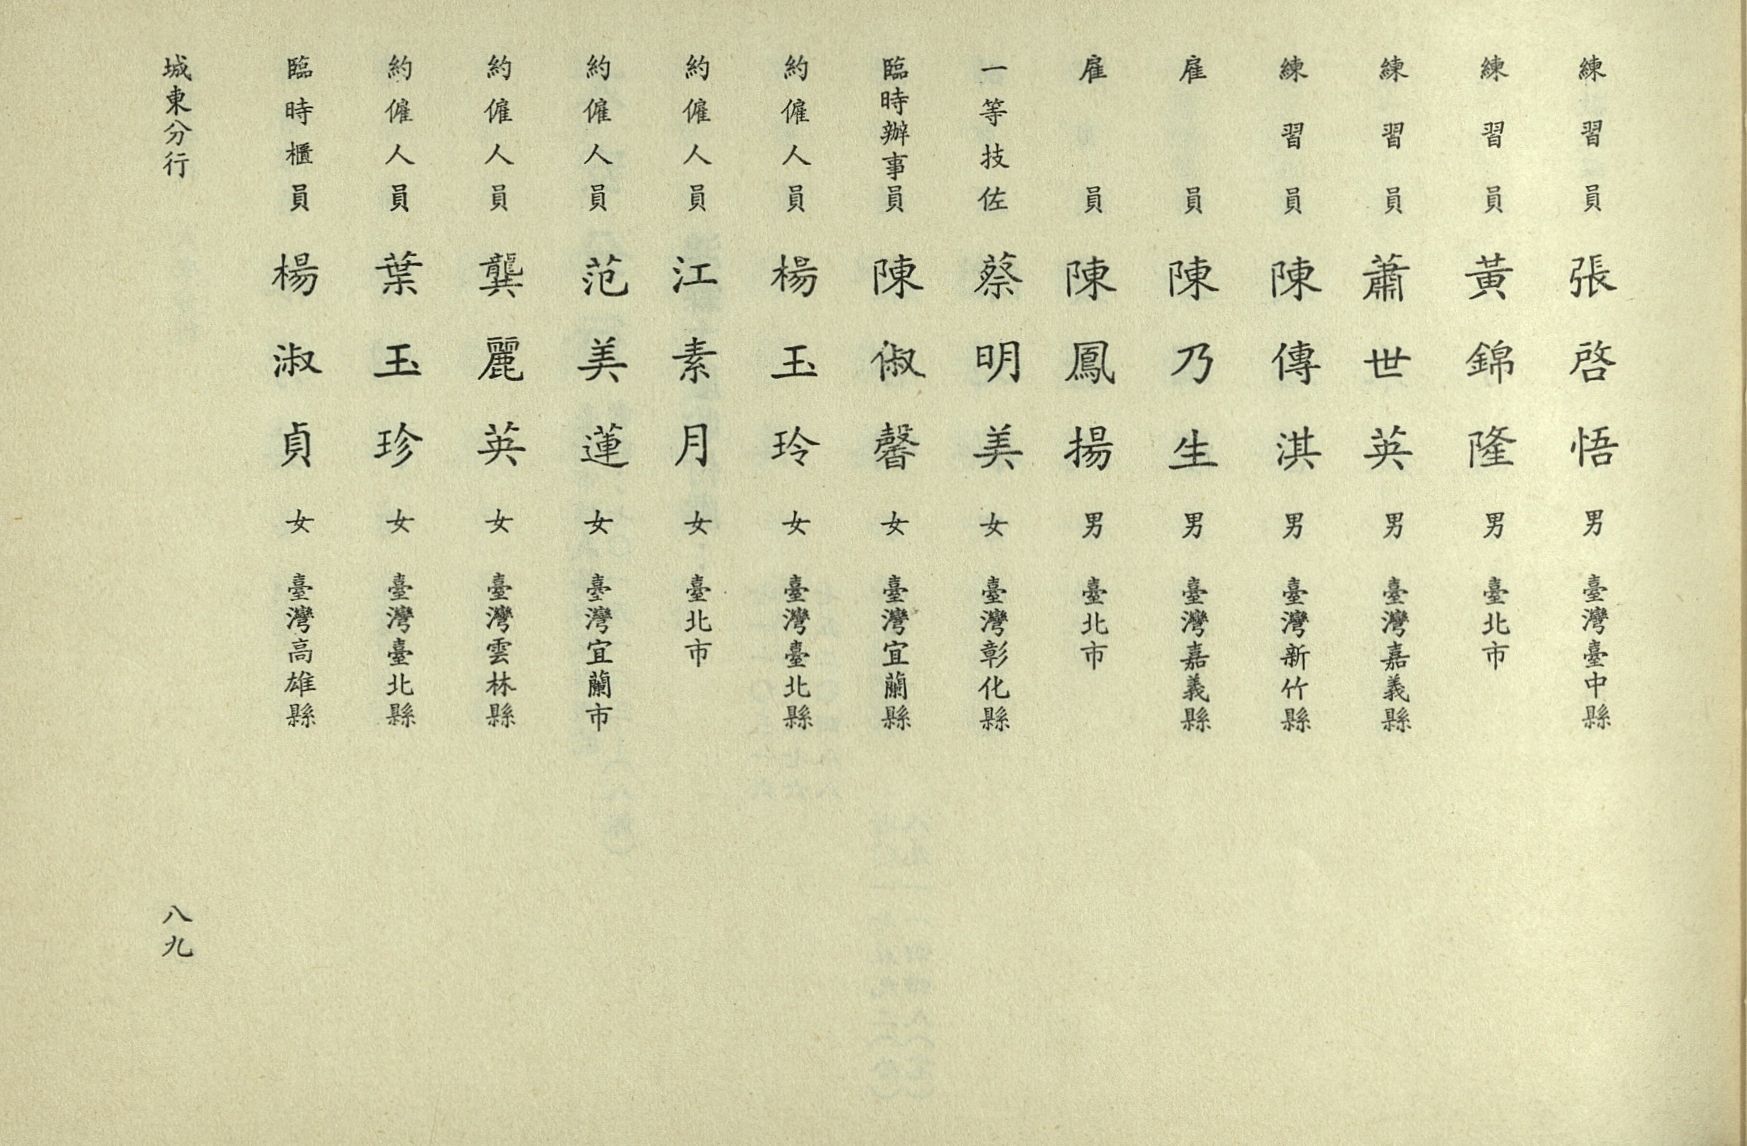 練習員 張啓悟 男 臺灣臺中縣
練習員 黃錦隆 男 臺北市
練習員 蕭世英 男 臺灣嘉義縣
練習員 陳傳淇 男 臺灣新竹縣
雇員 陳乃生 男 臺灣嘉義縣
雇員 陳鳳揚 男 臺北市
一等技佐 蔡明美 女 臺灣彰化縣
臨時辦事員 陳俶馨 女 臺灣宜蘭縣
約僱人員 楊玉玲 女 臺灣臺北縣
約僱人員 江素月 女 臺北市
約僱人員 范美蓮 女 臺灣宜蘭市
約僱人員 龔麗英 女 臺灣雲林縣
約僱人員 葉玉珍 女 臺灣臺北縣
臨時櫃員 楊淑貞 女 臺灣高雄縣
城東分行
八九